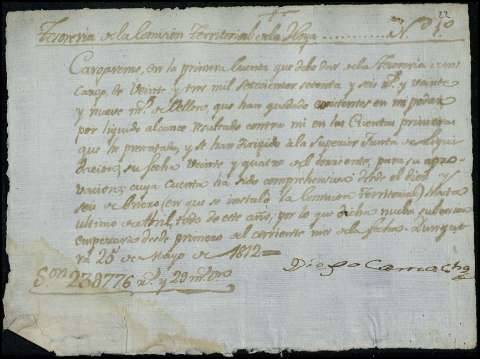 22
Tesoreria de la Comision Territorial de la Hoya ........... N.º 1.º
Cargareme, en la primera Cuenta que debo dar de la Tesoreria de mi
cargo, de Veinte y tres mil setecientos setenta y seis r.s y veinte
y nueve m.s de Vellon, que han quedado existentes en mi poder
por liquido alcance resultado contra mi en las Cuentas primeras
que he presentado, y se han dirigido a la Superior Junta de Liqui
dacion su fecha Veinte y quatro del corriente, para su apro
vacion; cuya Cuenta ha sido comprehensiva desde el diez y
seis de Enero (en que se instaló la Comision Territorial) hasta
ultimo de Abril, todo de este año, por lo que dicha nueba
empezara desde primero del corriente mes de la fecha.
25 de Mayo de 1812=
Son 23(8)776 r.s y 29 m.s Vn
Diego Camacho